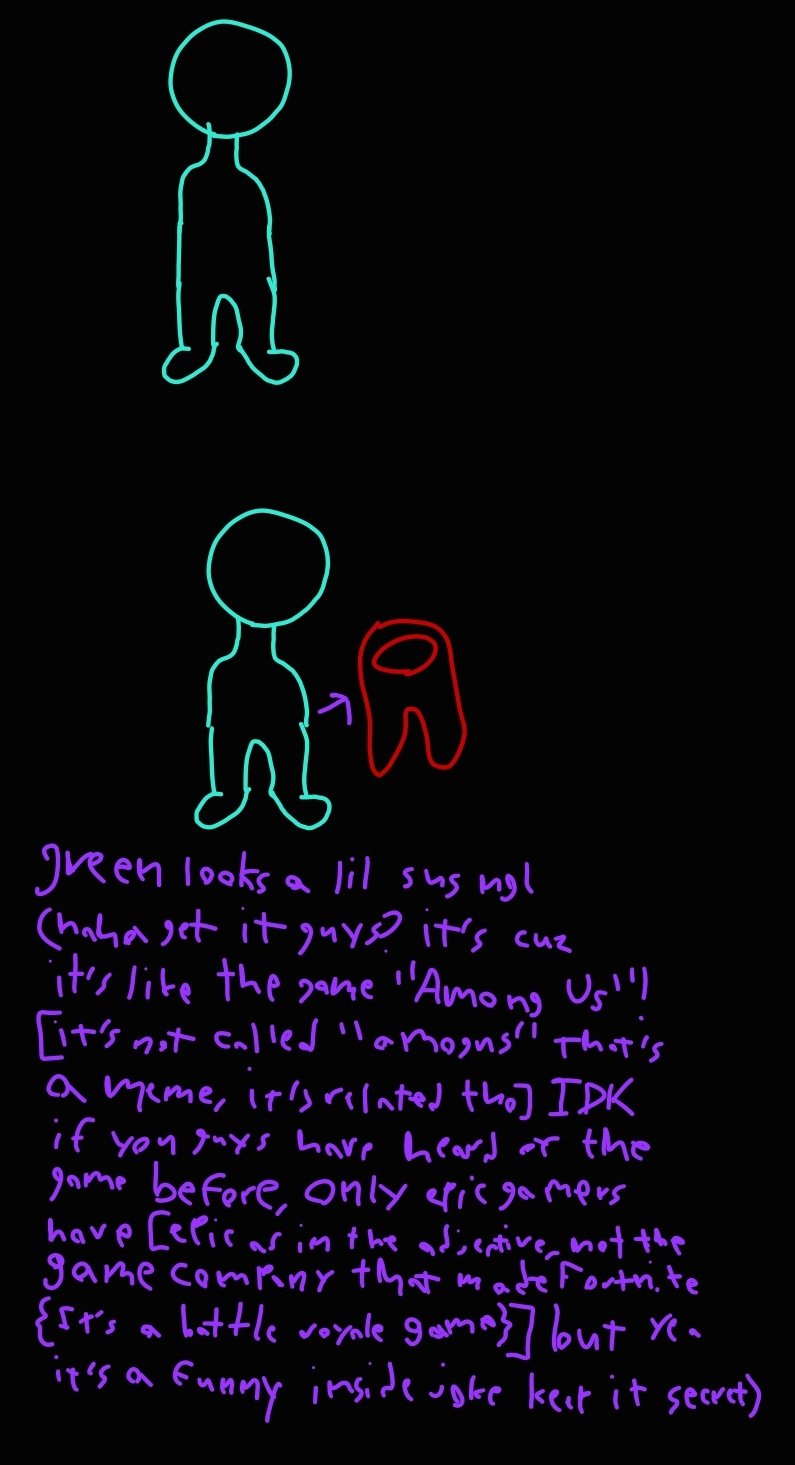 green looks a lil sus ngl
(haha get it guys? it's cuz
it's like the game "Among Us")
[it's not called "amogus" that's
a meme, it's related tho] IDK
if you guys have heard of the
game before, only epic gamers
have [epic as in the adjective, not the
game company that made Fortnite
{It's a battle royale game}] but yea
it's a funny inside joke keep it secret)